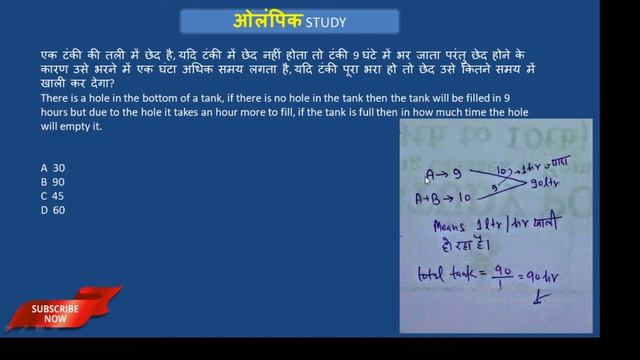 ओलंपिक STUDY
एक टंकी की तली में छेद है, यदि टंकी में छेद नहीं होता तो टंकी 9 घंटे में भर जाता परंतु छेद होने के
कारण उसे भरने में एक घंटा अधिक समय लगता है, यदि टंकी पूरा भरा हो तो छेद उसे कितने समय में
खाली कर देगा?
There is a hole in the bottom of a tank, if there is no hole in the tank then the tank will be filled in 9
hours but due to the hole it takes an hour more to fill, if the tank is full then in how much time the hole
will empty it.
A 30
B 90
C 45
D 60
A → 9 10 → 1hr
9 90ltr
A+B → 10
Means 1ltr/hr खाली
हो रहा है।
total tank = 90/1 = 90hr
SUBSCRIBE
NOW